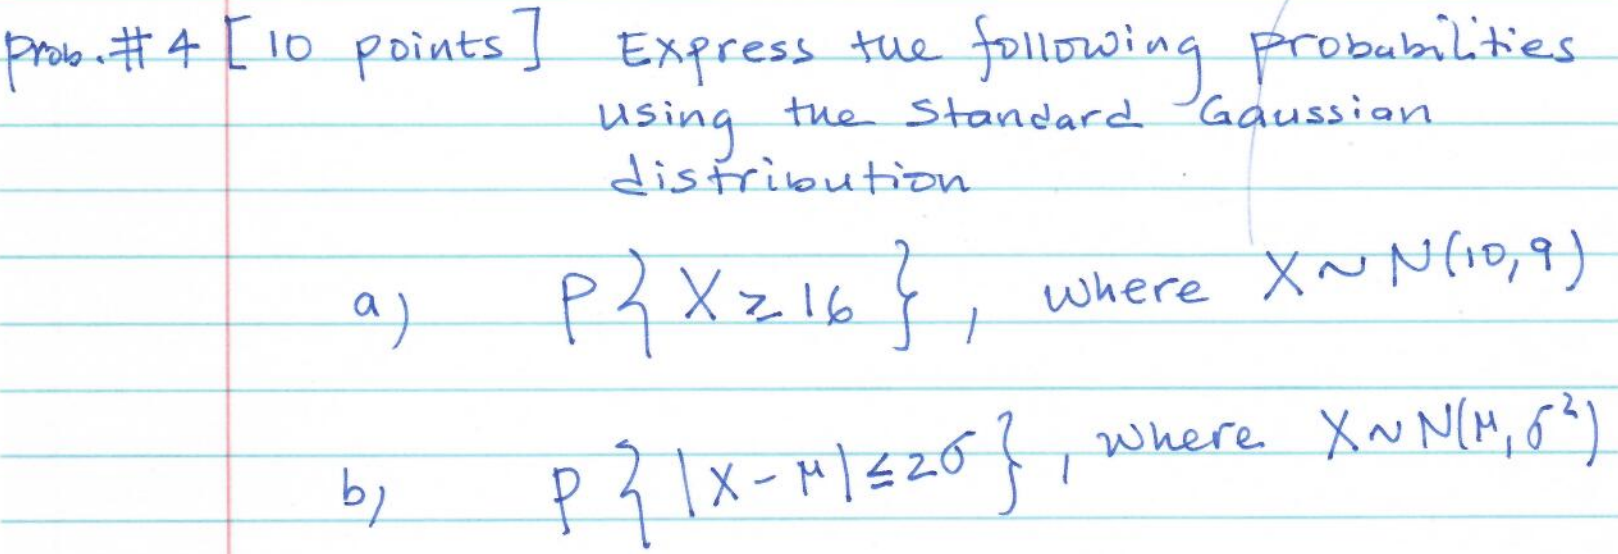 Prob. # 4 [10 points] Express the following probabilities
using the Standard Gaussian
distribution
a) P{X ≥ 16}, where X ~ N(10,9)
b) P{|X-μ| ≤ 2σ}, where X ~ N(μ,σ²)